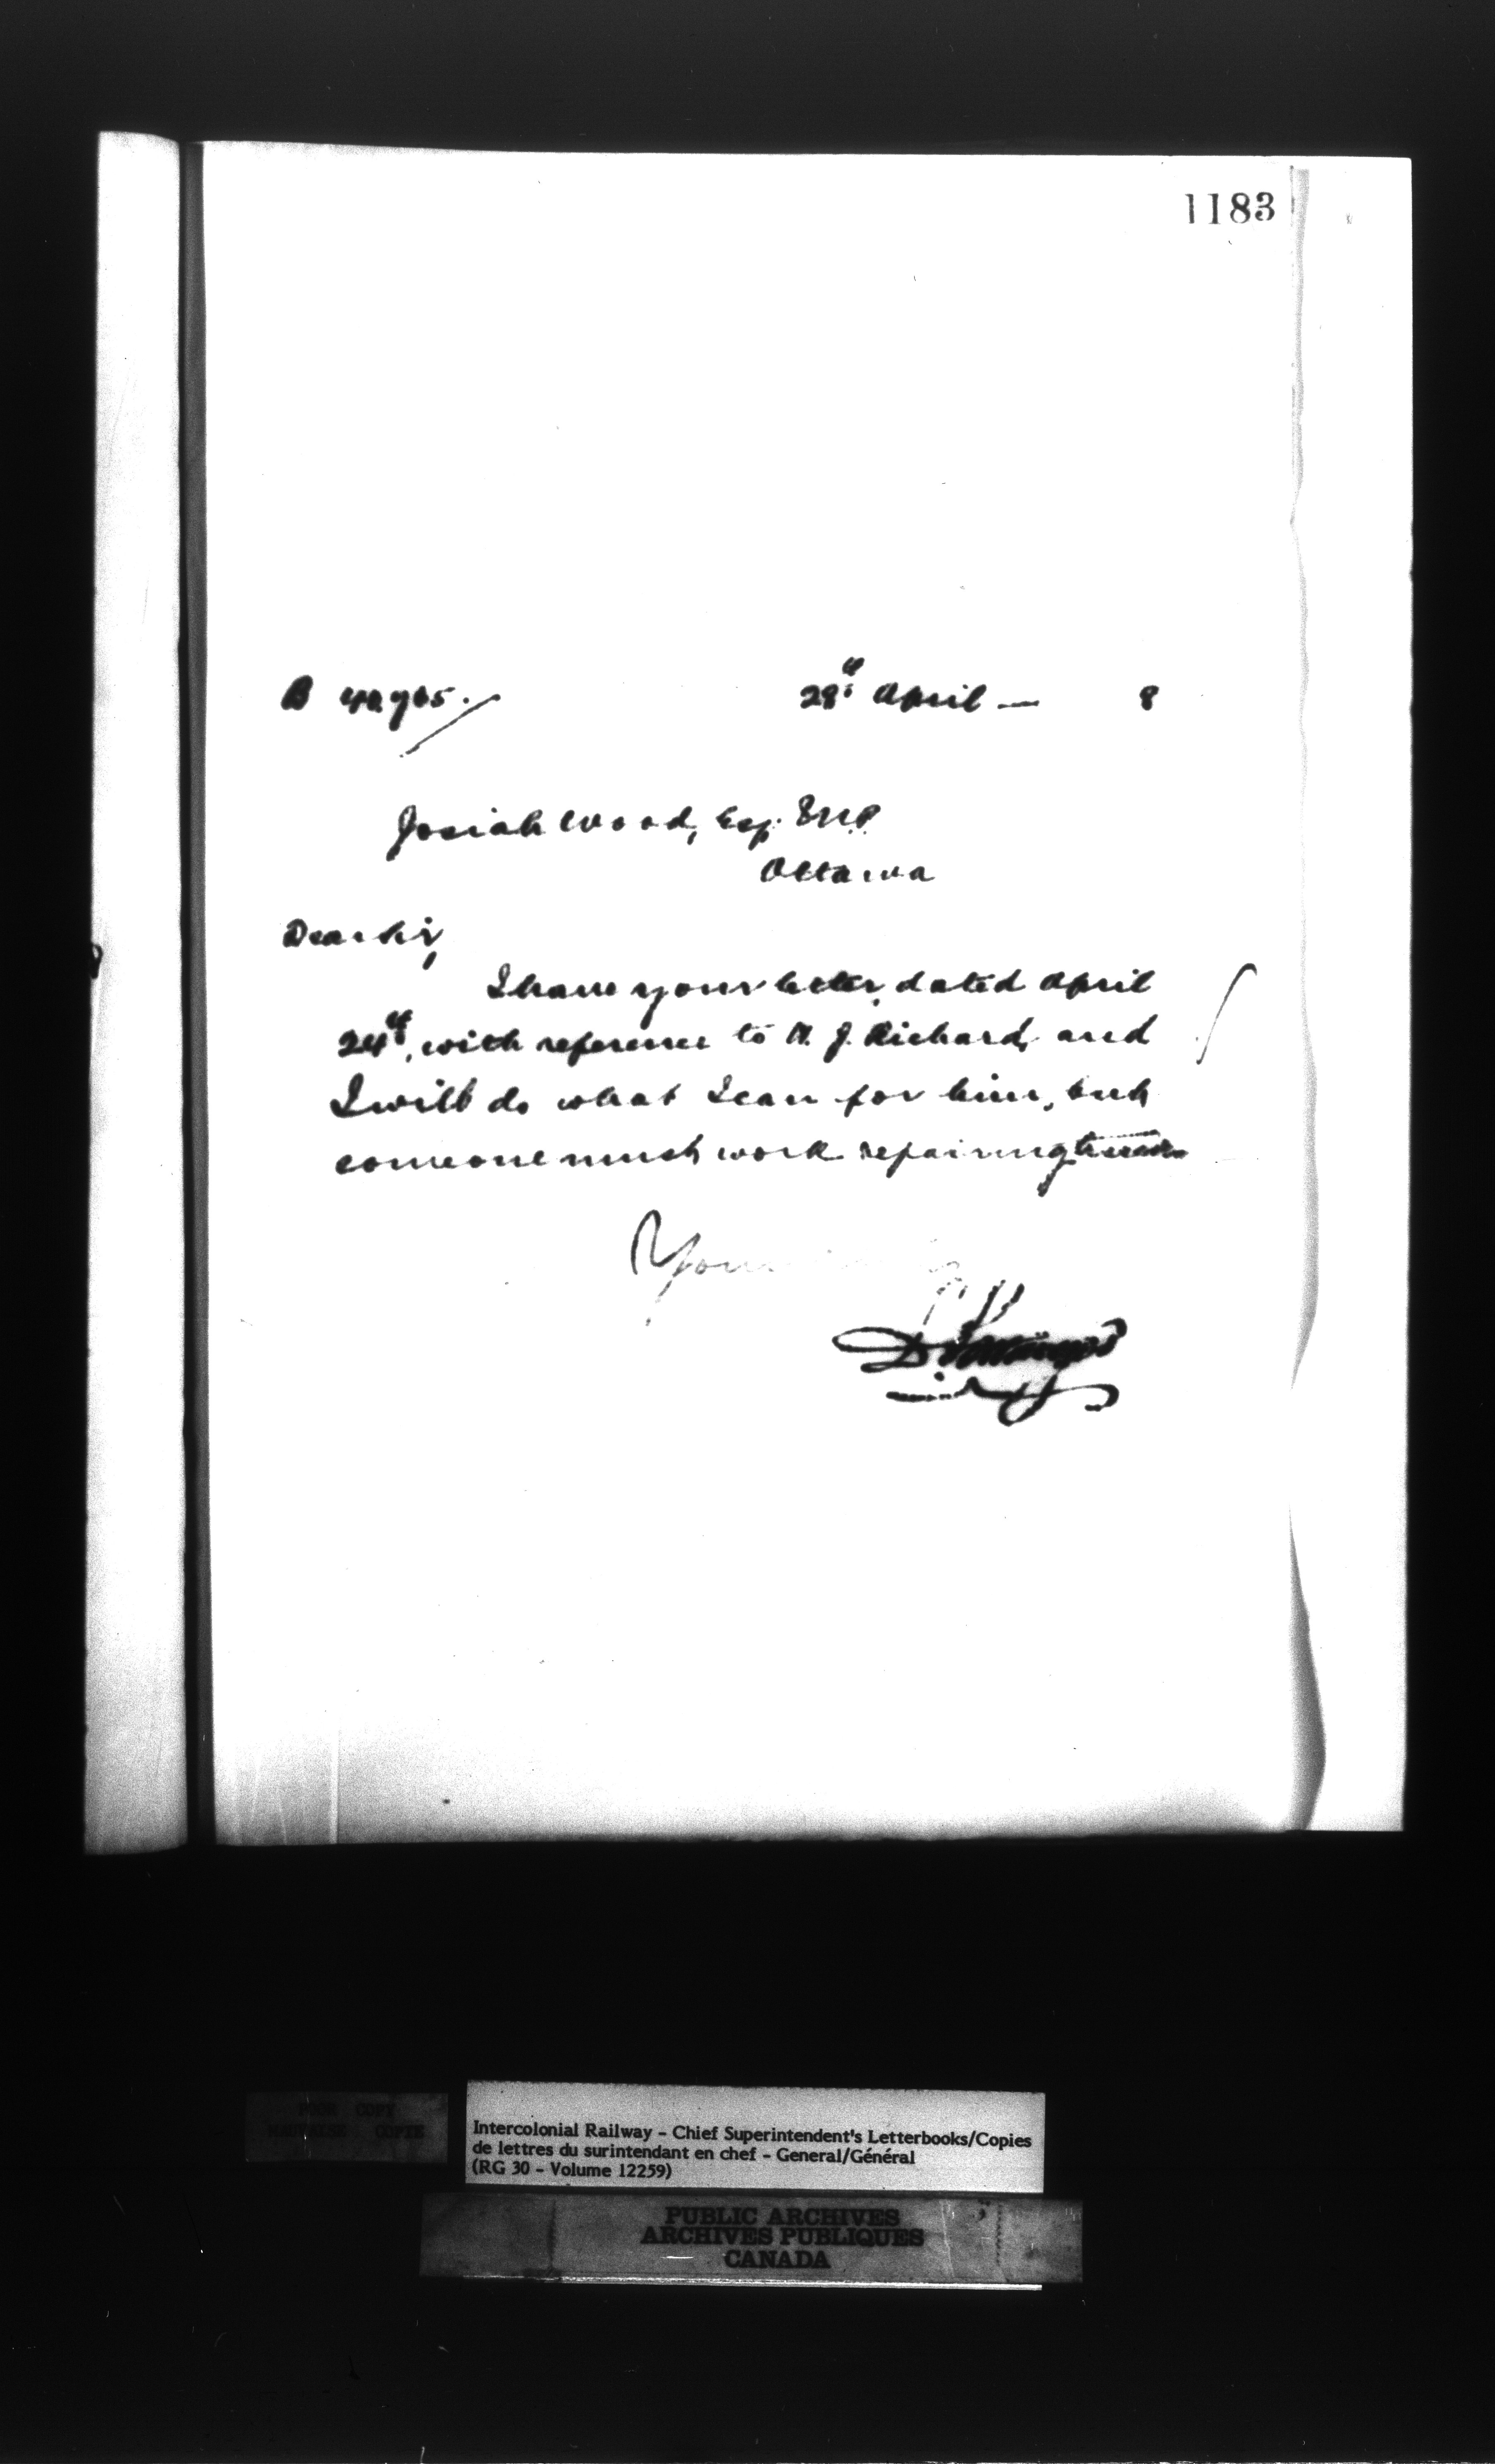 1183
B 40905.
28th April — 8
Josiah Wood, Esq. M.P.
Ottawa
Dear Sir,
I have your letter, dated April
24th, with reference to J. Richard, and
I will do what I can for him, but
someone must work repairing
Your
D Pottinger
POOR COPY
MAUVAISE COPIE
Intercolonial Railway - Chief Superintendent's Letterbooks/Copies
de lettres du surintendant en chef - General/Général
(RG 30 - Volume 12259)
PUBLIC ARCHIVES
ARCHIVES PUBLIQUES
CANADA